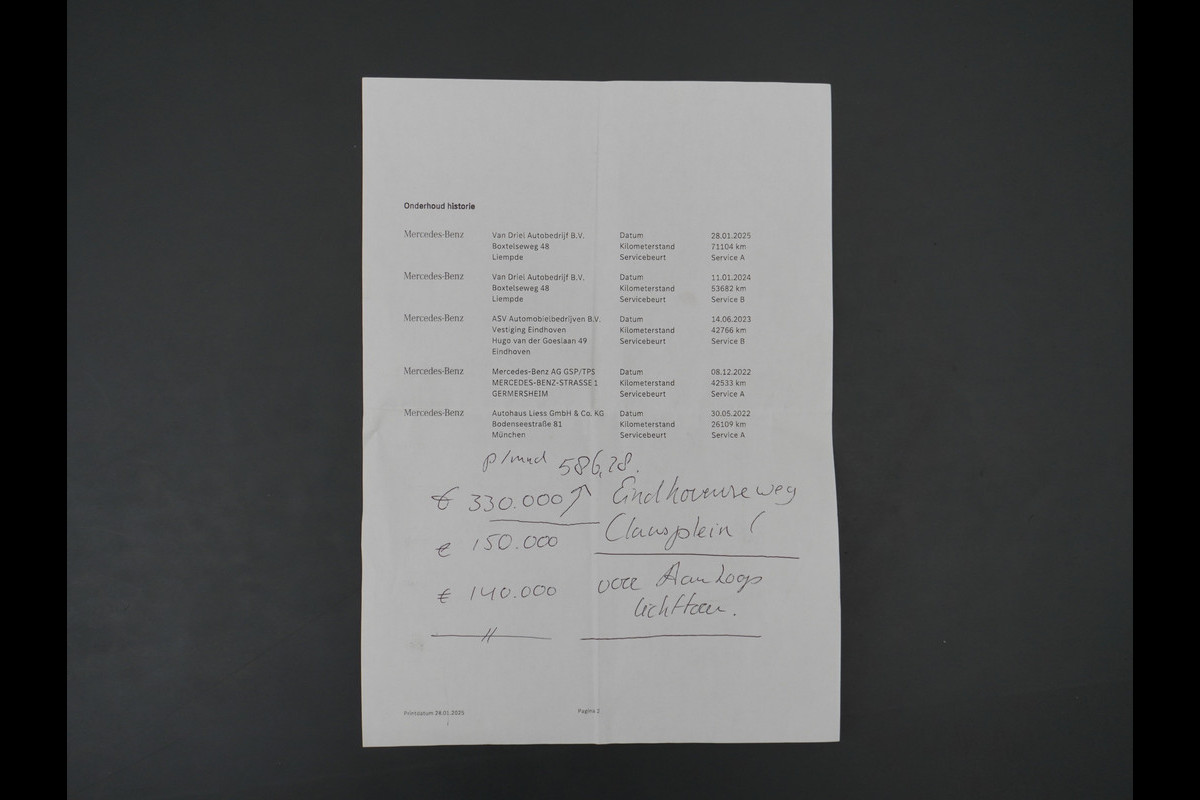 Onderhoud historie
Mercedes-Benz Van Driel Autobedrijf B.V. Datum 28.01.2025
Boxtelseweg 48 Kilometerstand 71104 km
Liempde Servicebeurt Service A
Mercedes-Benz Van Driel Autobedrijf B.V. Datum 11.01.2024
Boxtelseweg 48 Kilometerstand 53682 km
Liempde Servicebeurt Service B
Mercedes-Benz ASV Automobielbedrijven B.V. Datum 14.06.2023
Vestiging Eindhoven Kilometerstand 42766 km
Hugo van der Goeslaan 49 Servicebeurt Service B
Eindhoven
Mercedes-Benz Mercedes-Benz AG GSP/TPS Datum 08.12.2022
MERCEDES-BENZ-STRASSE 1 Kilometerstand 42533 km
GERMERSHEIM Servicebeurt Service A
Mercedes-Benz Autohaus Liess GmbH & Co. KG Datum 30.05.2022
Bodenseestraße 81 Kilometerstand 26109 km
München Servicebeurt Service A
p/mnd 586,28.
€ 330.000 Eindhovenseweg
Clausplein
€ 150.000
€ 140.000
Printdatum 28.01.2025 Pagina 2